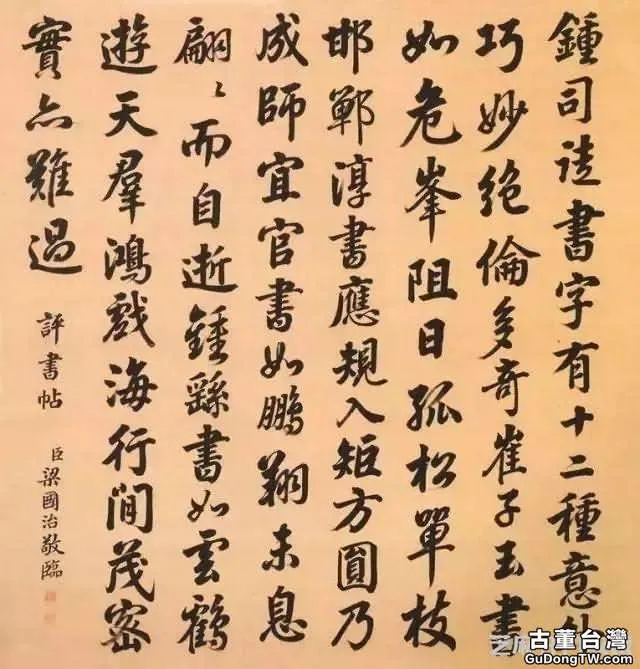 鍾司徒書字有十二種意外
巧妙絕倫多奇崔子玉書
如危峯阻日孤松單枝
邯鄲淳書應規入矩方圓乃
成師宜官書如鵬翔未息
翩〻而自逝鍾繇書如雲鶴
遊天羣鴻戲海行間茂密
實亦難過 評書帖 臣梁國治敬臨
古董台灣
GuDongTW.com